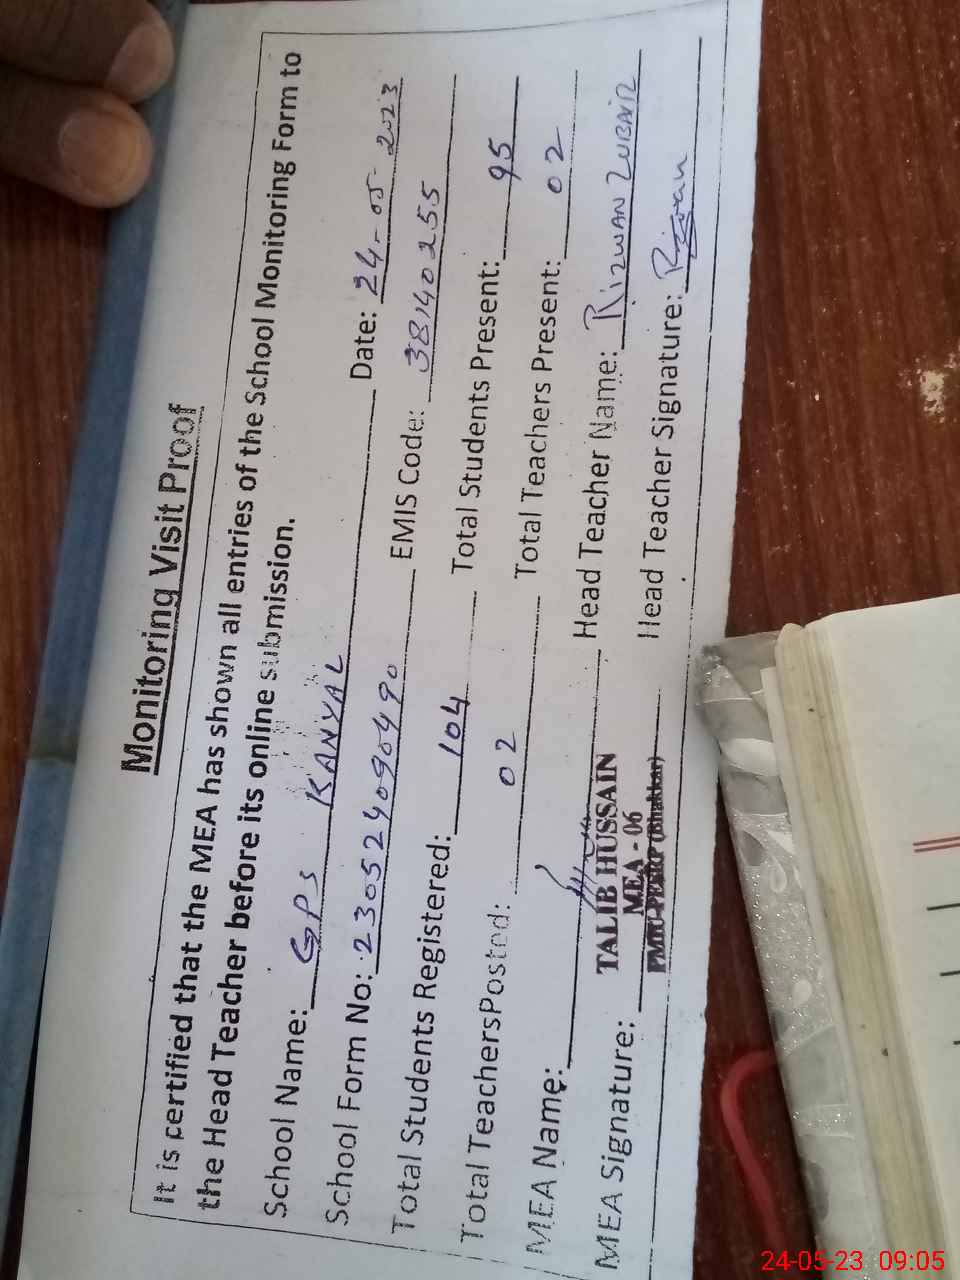 Monitoring Visit Proof
It is certified that the MEA has shown all entries of the School Monitoring Form to
the Head Teacher before its online submission.
School Name: GPS KANYAL Date: 24-05-2023
School Form No: 230524090490 EMIS Code: 38140255
Total Students Registered: 104 Total Students Present: 95
Total TeachersPosted: 02 Total Teachers Present: 02
MEA Name: Head Teacher Name: RIZWAN ZUBAIR
TALIB HUSSAIN
MEA - 06
MEA Signature: PMIU-PESRP (Bhakkar) Head Teacher Signature: Rizwan
24-05-23 09:05